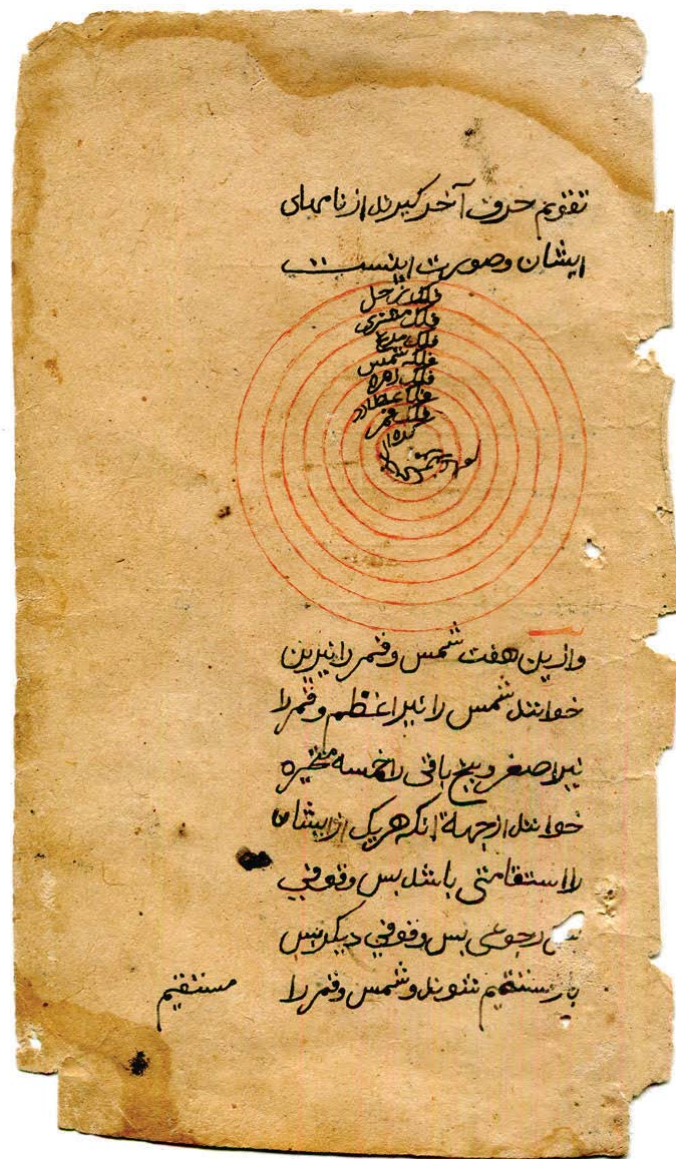 تقویم حرف آخر کیرند از نامهای
ایشان و صورت اینست
فلک زحل
فلک مشتری
فلک مریخ
فلک شمس
فلک زهره
فلک عطارد
فلک قمر
کره
وازین هفت شمس و قمر را نیرین
خوانند شمس را نیر اعظم و قمر را
نیر اصغر و پنج باقی را خمسه متحیره
خوانند از جهة انکه هر یک از ایشان
را استقامتی باشد بس وقوفی
بس رجوعی بس وقوفی دیکر بس
باز مستقیم شوند و شمس و قمر را
مستقیم